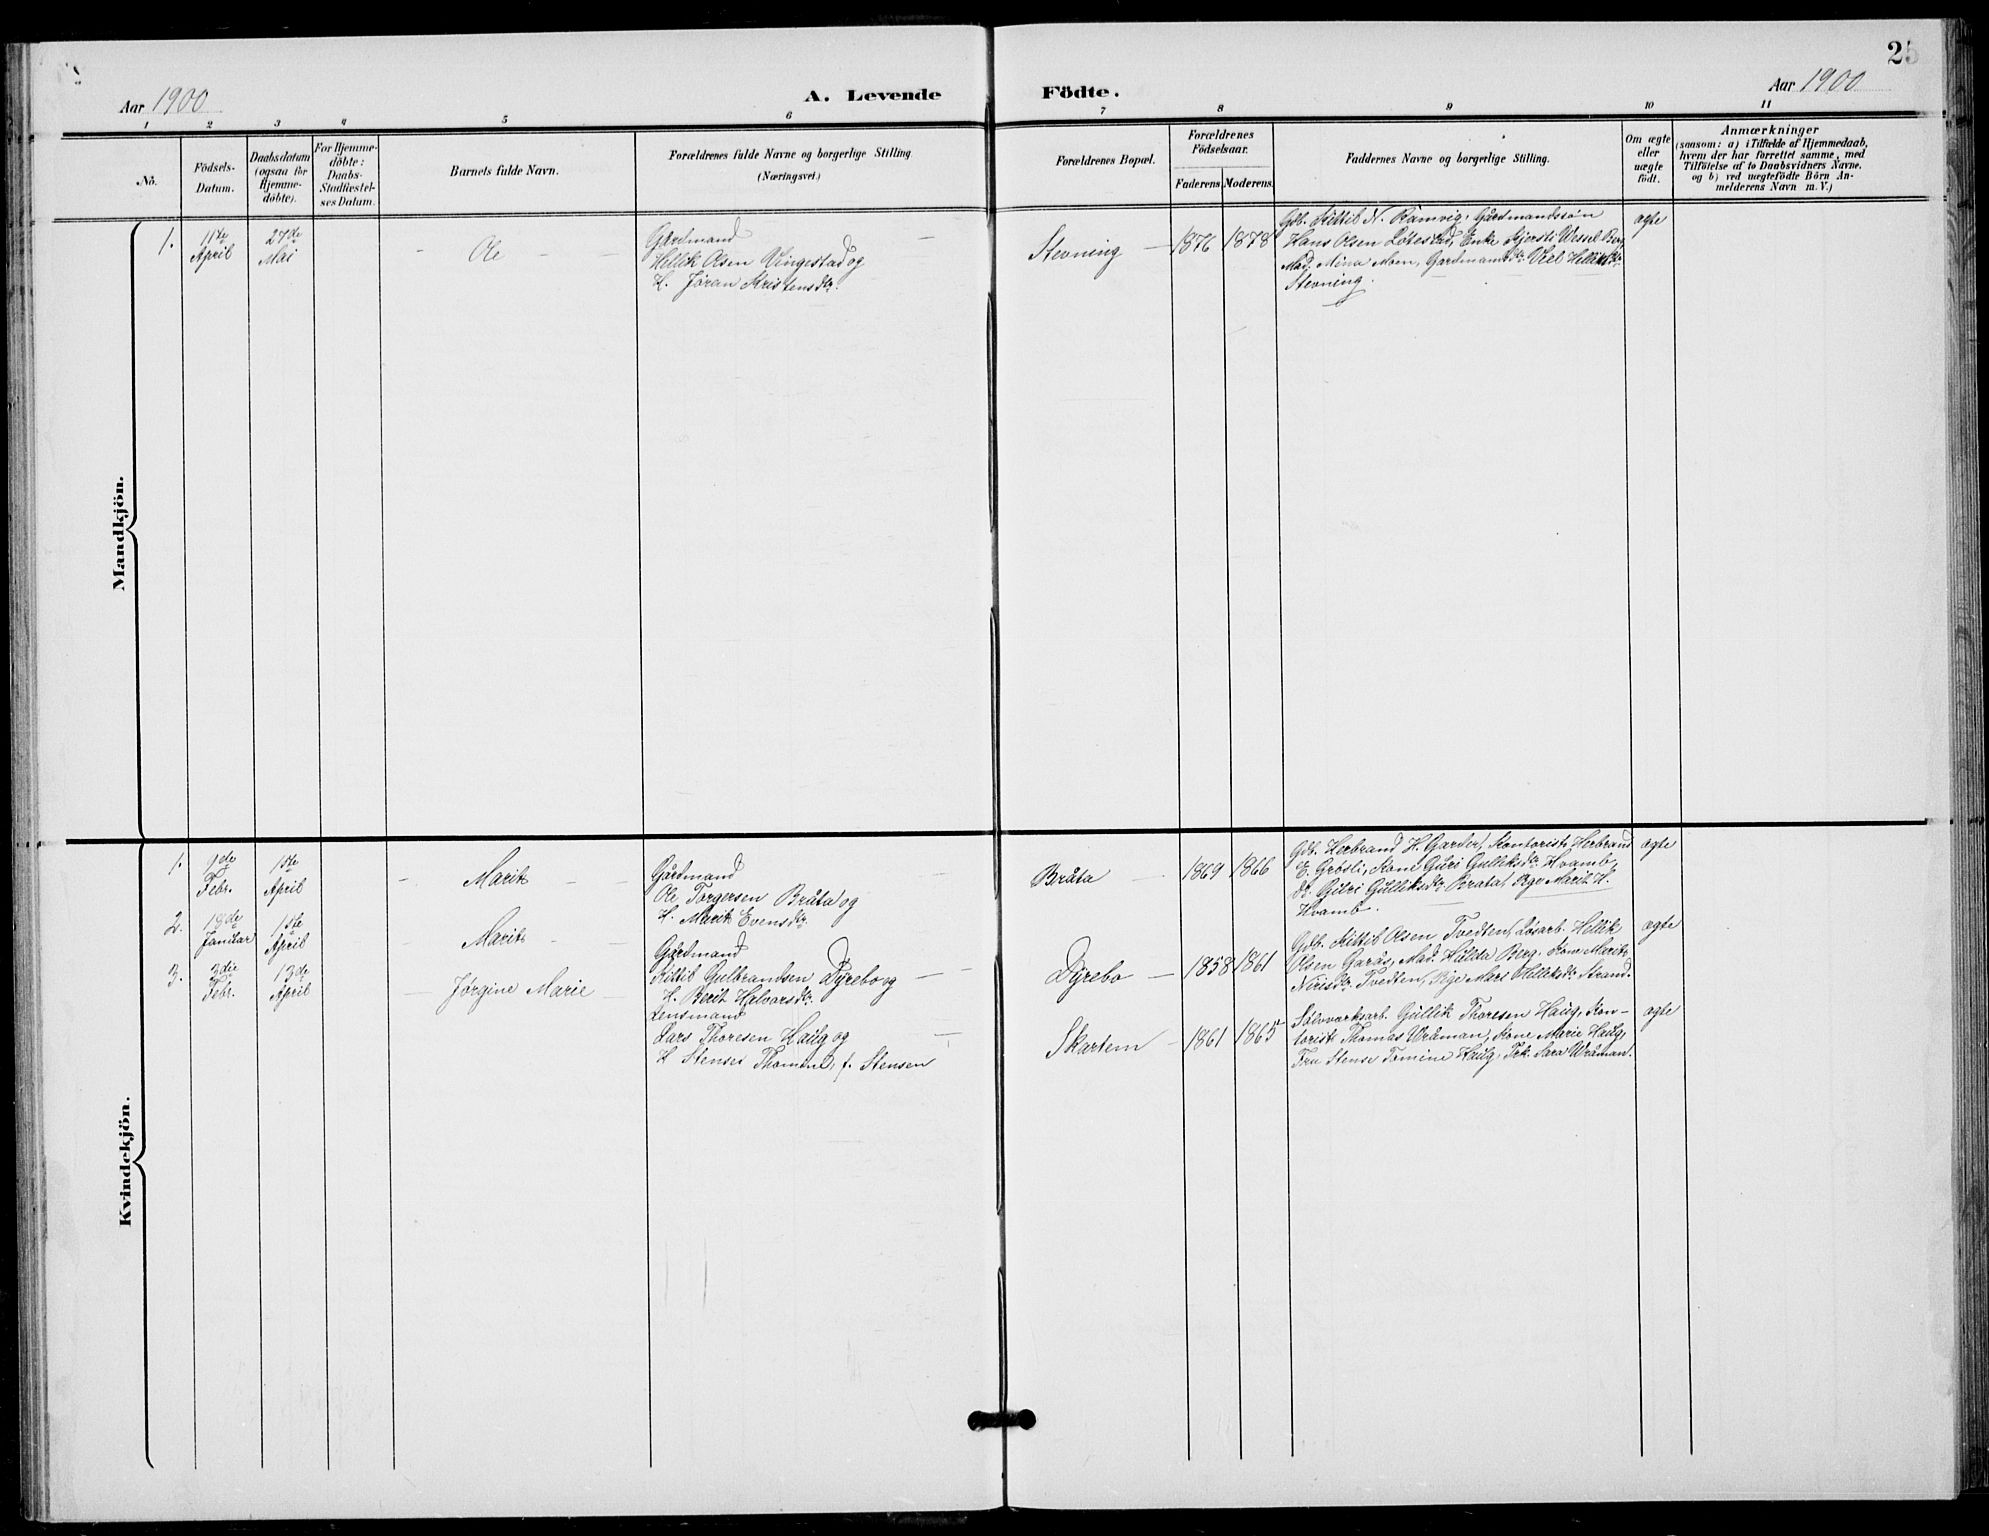 25
Aar 1900
A. Levende Födte.
Aar 1900
1 2 3 4 5 6 7 8 9 10 11
No.
Födsels-Datum.
Daabsdatum (ogsaa for Hjemme-döbte).
For Hjemme-döbte: Daabs-Stadfæstel-ses Datum.
Barnets fulde Navn.
Forældrenes fulde Navne og borgerlige Stilling (Næringsvei.)
Forældrenes Bopæl.
Forældrenes Födselsaar.
Faderens. Moderens.
Faddernes Navne og borgerlige Stilling.
Om ægte eller uægte födt.
Anmærkninger
(saasom: a) i Tilfælde af Hjemmedaab,
hvem der har forrettet samme, med
Tilföielse af to Daabsvidners Navne.
og b) ved uægtefödte Börn An-
melderens Navn m. V.)
Mandkjön.
1. 11te April 27de Mai
Ole
Gårdmand
Hellik Olsen Vingestad og
H. Jöran Kristensdtr.
Stevning 1876 1878
Gdb. Kittil N. Ramvig, Gårdmandssön
Hans Olsen Lötestad, Enke Kjersti Wessel Berg
Mad. Mina Moen, Gardmandsdtr.
Stevning.
ægte
Kvindekjön.
1. Febr. 1ste April
Marit
Gårdmand
Ole Torgersen Bråta og
H. Marit Evensdtr.
Bråta 1869 1866
Gdb. Herbrand H. Garder, Kontorist Herbrand
E. Grösli, Kone Guri Gulliksdtr. Hvamb,
do. Guri Gulliksdtr. Bråta, Pge Marit H.
Hvamb.
ægte
2. Januar 1ste April
Marit
Gårdmand
Kittil Gulbrandsen Dyrebo og
H. Berit Halvorsdtr.
Dyrebo 1858 1861
Gdb. Kittil Olsen Tvedten, Lösarb. Hellik
Olsen Garås, Mad. Hulda Berg, Kone Marit
Nirisdtr. Tvedten, Pige Mari Helliksdtr. Strand.
ægte
3. 3die Febr. 13de April
Jörgine Marie
Lensmand
Lars Thoresen Haug og
H Stense Thomine, f. Stensen
Skartem 1861 1865
Sölvverksarb. Gullik Thoresen Haug, Kon-
torist Thomas Wråman, Kone Marie Haug,
Fru Stense Tomine Haug, Frk. Sara Wråman.
ægte